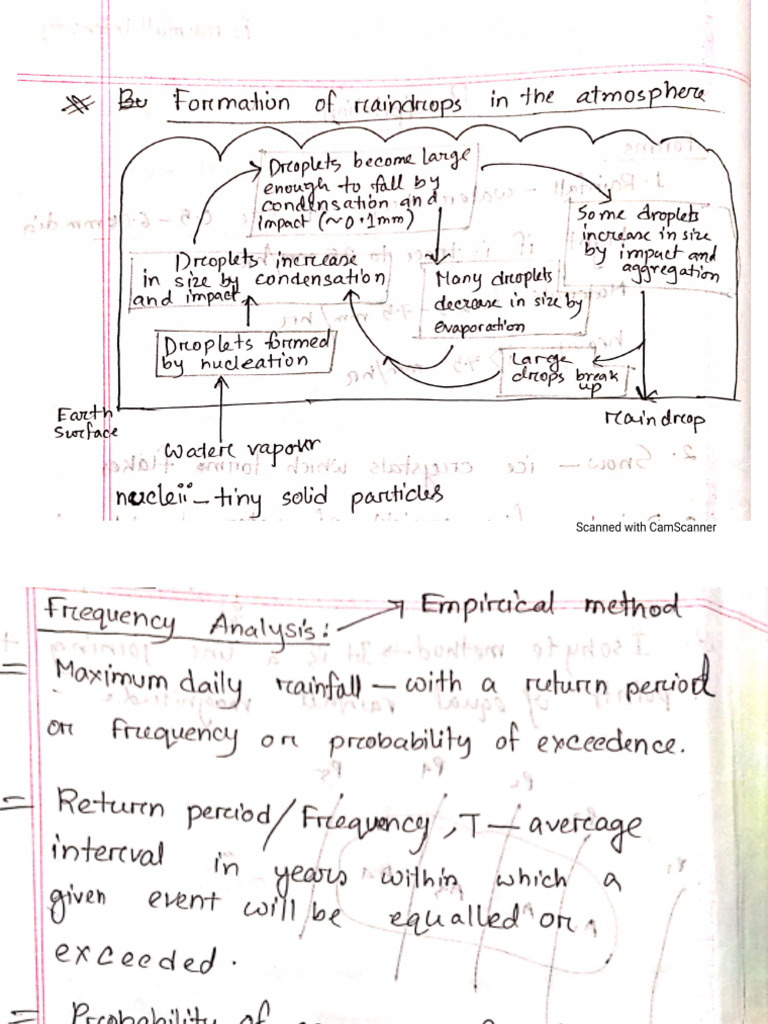 Formation of raindrops in the atmosphere
Droplets become large
enough to fall by
condensation and
impact (~0.1mm)
Some droplets
increase in size
by impact and
aggregation
Droplets increase
in size by condensation
and impact
Many droplets
decrease in size by
evaporation
Droplets formed
by nucleation
Large
drops break
up
Earth
Surface
raindrop
Water vapour
nucleii - tiny solid particles
Scanned with CamScanner
Frequency Analysis: → Empirical method
= Maximum daily rainfall – with a ruturn period
or frequency or probability of exceedence.
= Return period/Frequency, T – average
interval in years within which a
given event will be equalled or
exceeded.
= Probability of